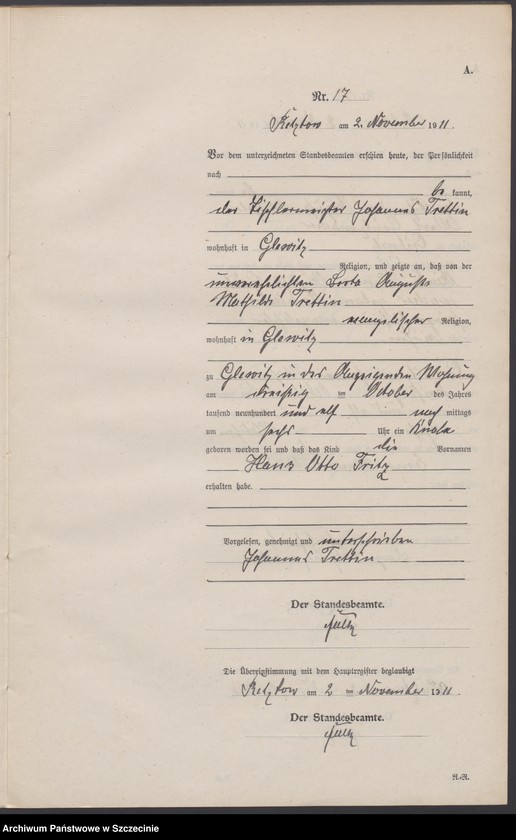 A.
Nr. 17
Ketztow am 2. November 1911.
Vor dem unterzeichneten Standesbeamten erschien heute, der Persönlichkeit
nach
be kannt,
der Tischlermeister Johannes Trettin
wohnhaft in Glewitz
Religion, und zeigte an, daß von der
unverehelichten Berta Auguste
Mathilde Trettin
evangelischer Religion,
wohnhaft in Glewitz
zu Glewitz in der Anzeigenden Wohnung
am dreißig im October des Jahres
tausend neunhundert und elf nach mittags
um sechs Uhr ein Knabe
geboren worden sei und daß das Kind die Vornamen
Hans Otto Fritz
erhalten habe.
Vorgelesen, genehmigt und unterschrieben
Johannes Trettin
Der Standesbeamte.
Die Übereinstimmung mit dem Hauptregister beglaubigt
Ketztow am 2 im November 1911.
Der Standesbeamte.
A.R.
Archiwum Państwowe w Szczecinie